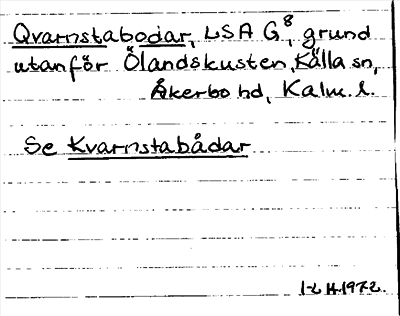 Qvarnstabodar, LSA G⁸, grund
utanför Ölandskusten, Källa sn,
Åkerbo hd, Kalm. l.
Se Kvarnstabådar
1972.